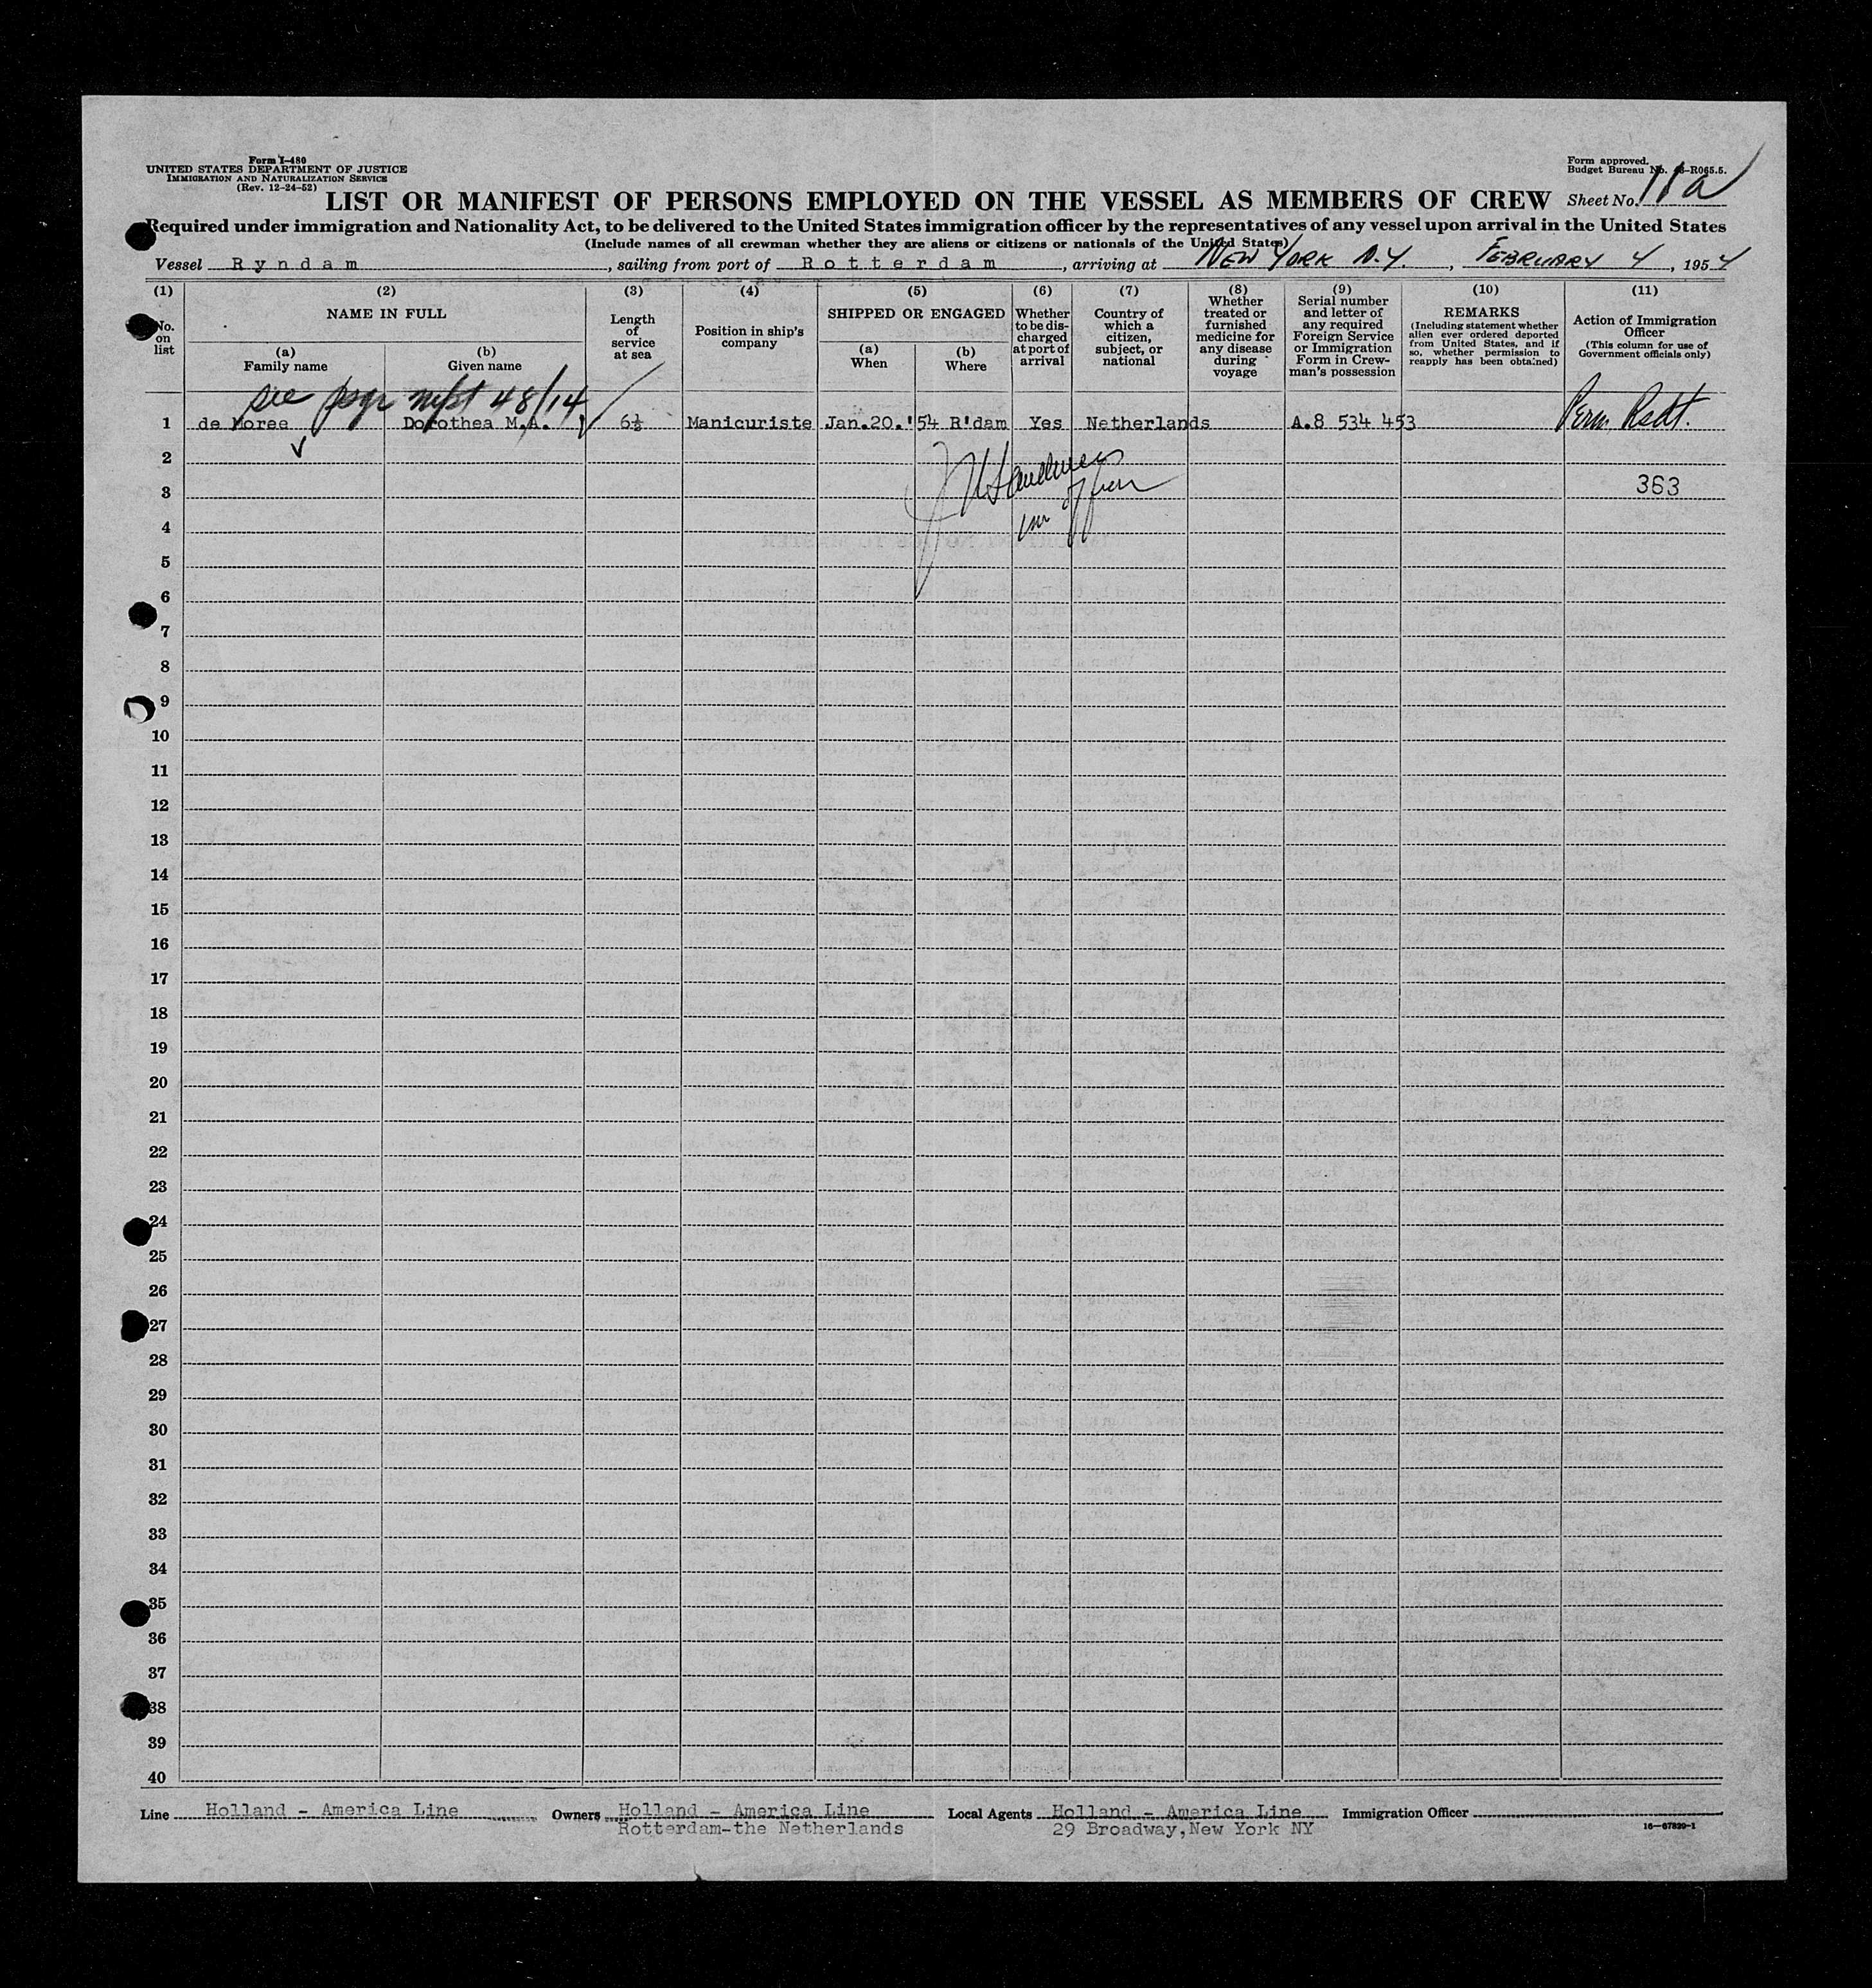 Form I-480
UNITED STATES DEPARTMENT OF JUSTICE
IMMIGRATION AND NATURALIZATION SERVICE
(Rev. 12-24-52)
Form approved.
Budget Bureau No. 43-R065.5.
LIST OR MANIFEST OF PERSONS EMPLOYED ON THE VESSEL AS MEMBERS OF CREW
Sheet No. 11a
Required under immigration and Nationality Act, to be delivered to the United States immigration officer by the representatives of any vessel upon arrival in the United States
(Include names of all crewman whether they are aliens or citizens or nationals of the United States)
Vessel Ryndam, sailing from port of Rotterdam, arriving at NEW YORK N.Y., FEBRUARY 4, 1954
(1) (2) (3) (4) (5) (6) (7) (8) (9) (10) (11)
No. on list
NAME IN FULL
(a) Family name
(b) Given name
Length of service at sea
Position in ship's company
SHIPPED OR ENGAGED
(a) When
(b) Where
Whether to be discharged at port of arrival
Country of which a citizen, subject, or national
Whether treated or furnished medicine for any disease during voyage
Serial number and letter of any required Foreign Service or Immigration Form in Crewman's possession
REMARKS
(Including statement whether alien ever ordered deported from United States, and if so, whether permission to reapply has been obtained)
Action of Immigration Officer
(This column for use of Government officials only)
see psgr mfst 48/14
1 de Moree Dorothea M.A. 6½ Manicuriste Jan.20.'54 R'dam Yes Netherlands A.8 534 453 Perm. Resdt.
2
3 363
4
5
6
7
8
9
10
11
12
13
14
15
16
17
18
19
20
21
22
23
24
25
26
27
28
29
30
31
32
33
34
35
36
37
38
39
40
Line Holland - America Line Owners Holland - America Line Local Agents Holland - America Line Immigration Officer
Rotterdam-the Netherlands 29 Broadway, New York NY
16—67820-1